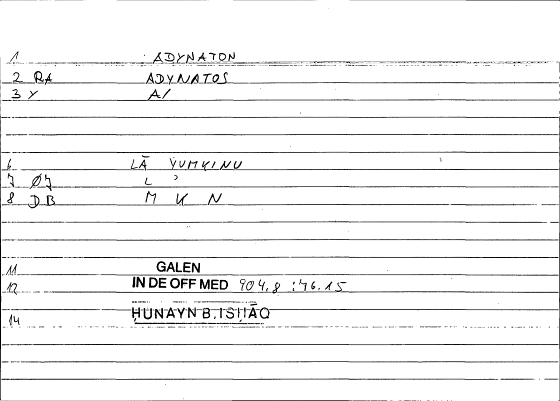 1 ADYNATON
2 RA ADYNATOS
3 Y A/
6 LĀ YUMKINU
7 Ø7 L ʾ
8 DB M K N
11 GALEN
12 IN DE OFF MED 904.8 :76.15
ḤUNAYN B. ISḤĀQ
14